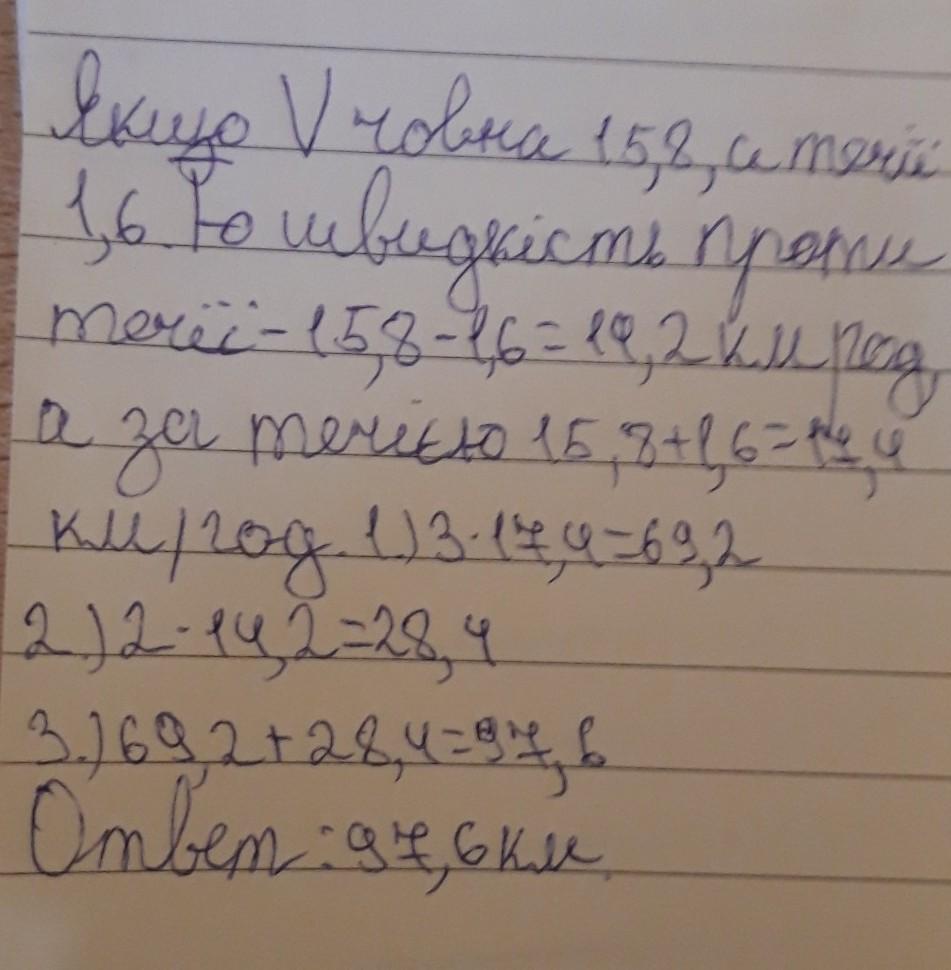 Якщо V човна 15,8, а течії
1,6. То швидкість проти
течії - 15,8 - 1,6 = 14,2 км/год,
а за течією 15,8 + 1,6 = 17,4
км/год. 1.) 3 · 17,4 = 69,2
2.) 2 · 14,2 = 28,4
3.) 69,2 + 28,4 = 97,6
Ответ: 97,6 км.